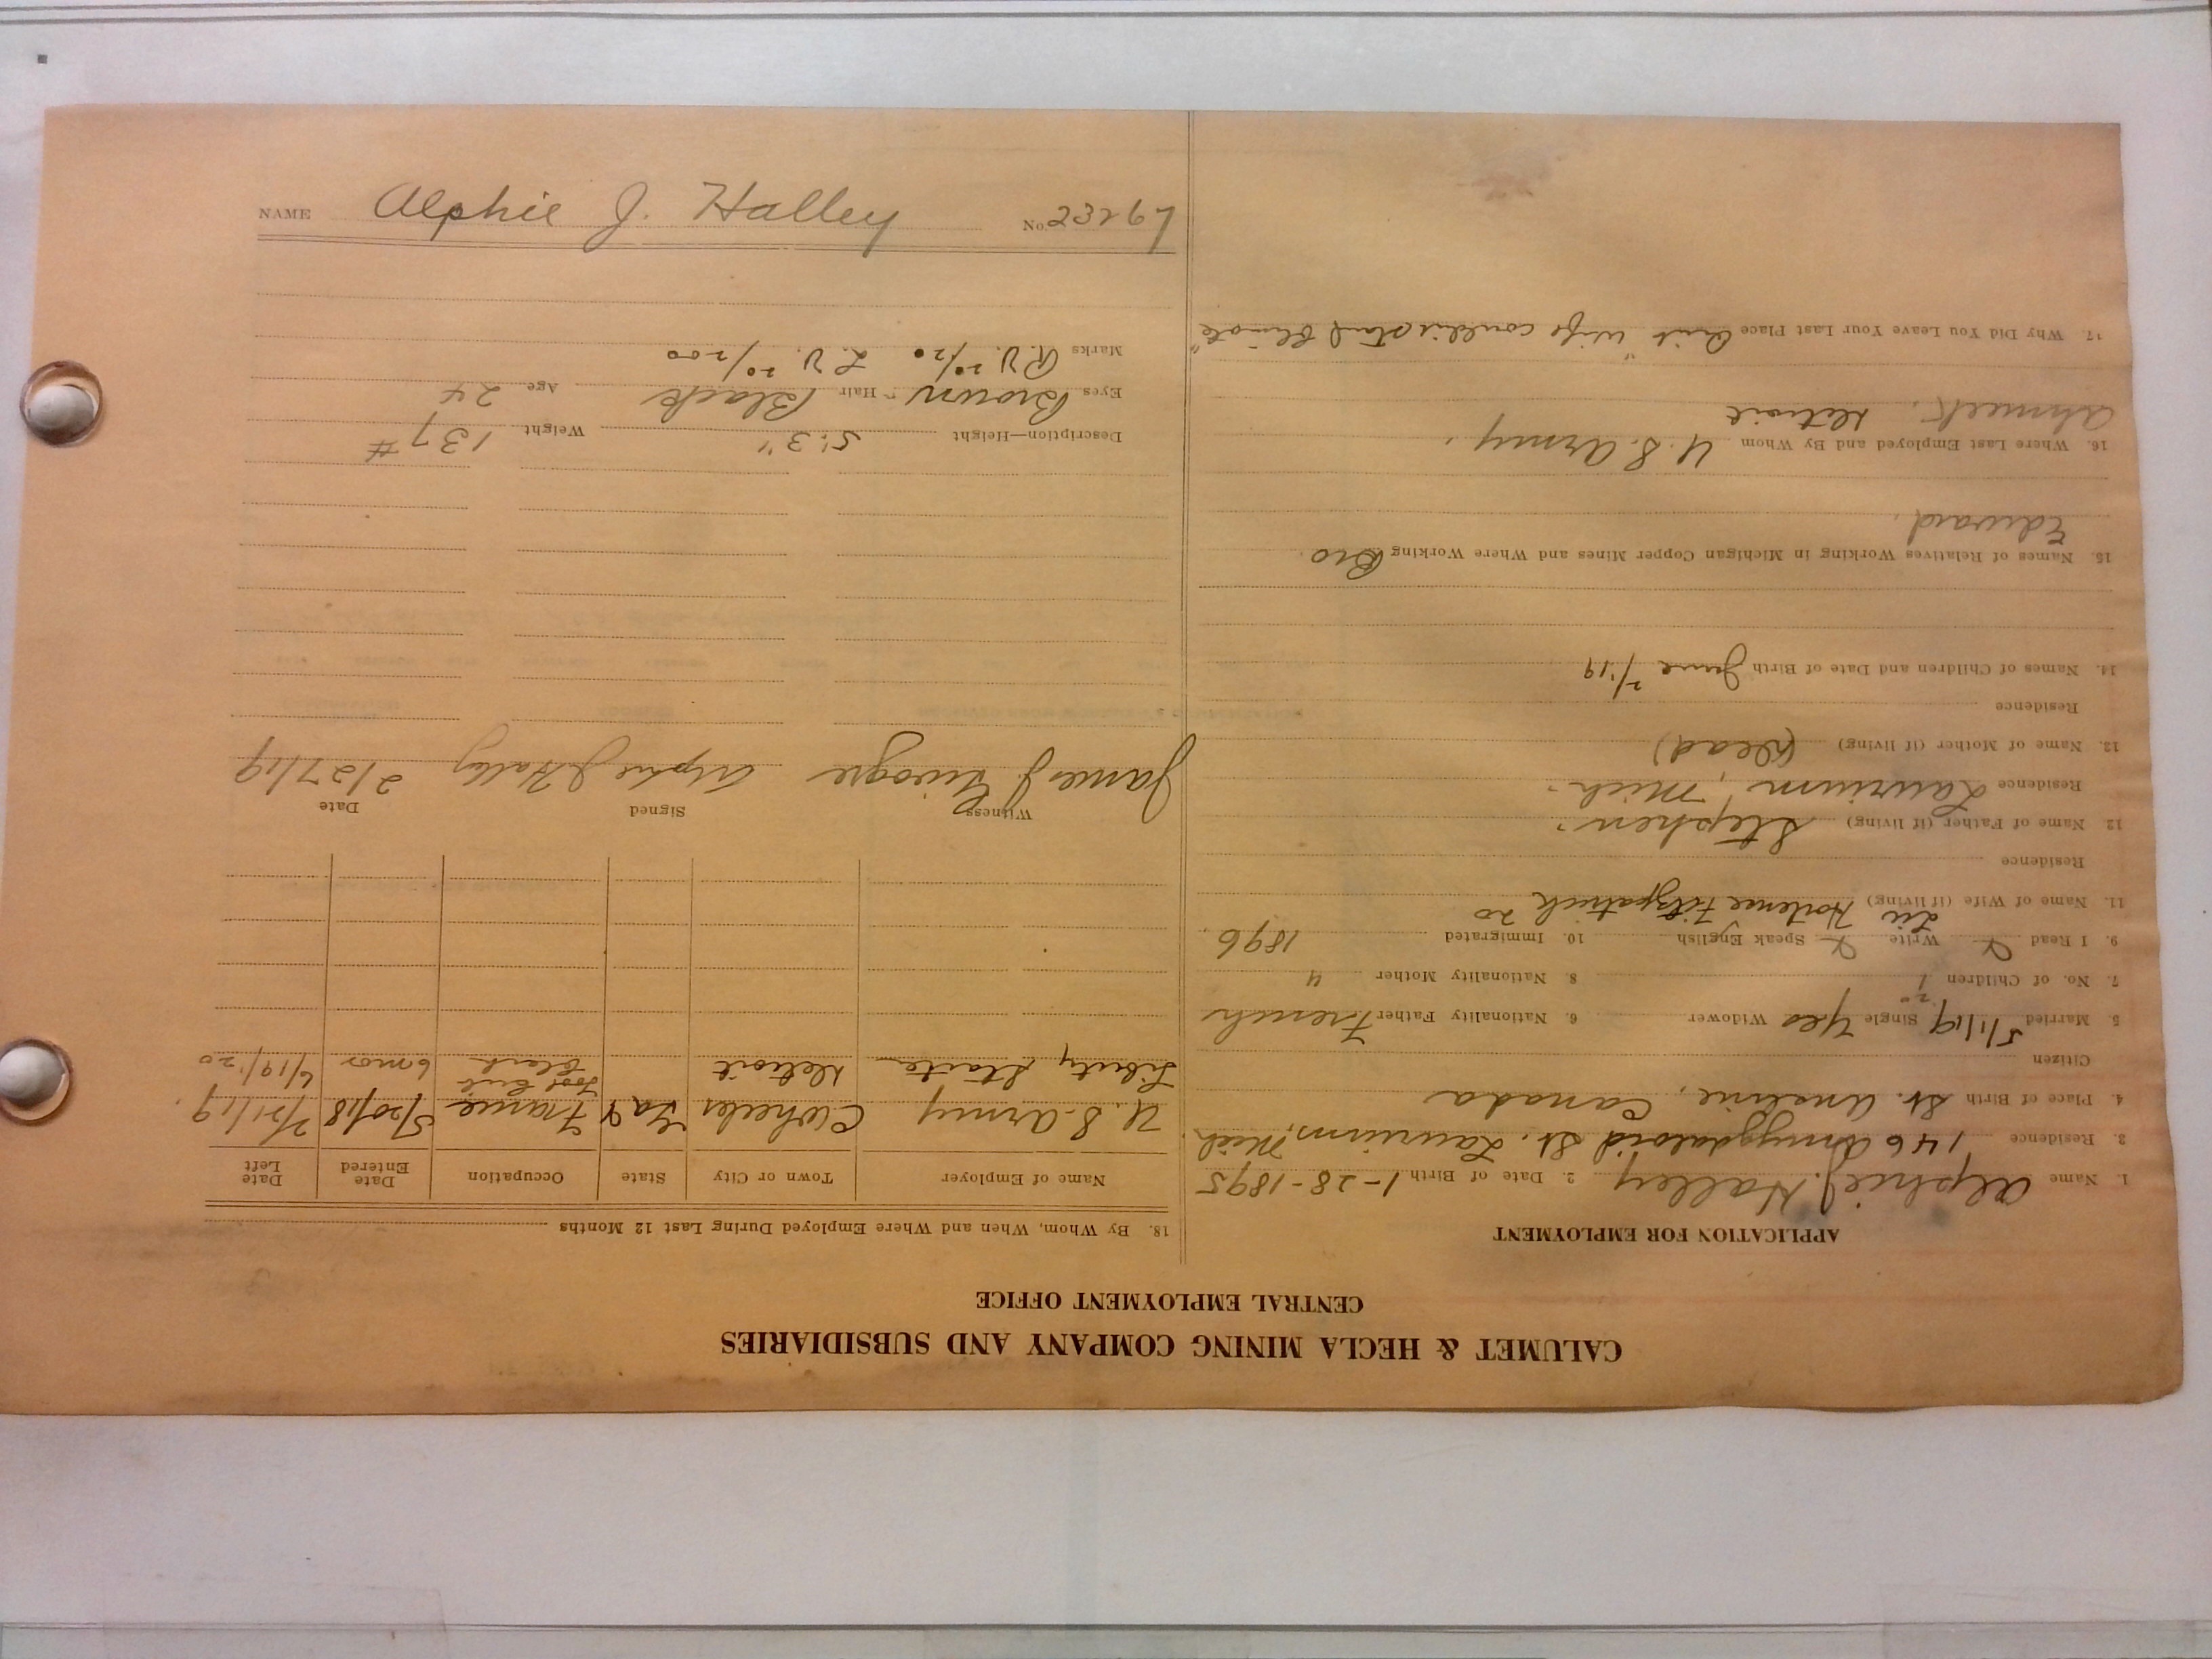 CALUMET & HECLA MINING COMPANY AND SUBSIDIARIES
CENTRAL EMPLOYMENT OFFICE
APPLICATION FOR EMPLOYMENT
1. Name Alphie J. Halley 2. Date of Birth 1-28-1895
3. Residence 146 Amygdaloid St. Laurium, Mich.
4. Place of Birth St. Anselme, Canada
Citizen
5. Married 5/1/19 Single Yes Widower 6. Nationality Father French
7. No. of Children 1 8. Nationality Mother "
9. I Read Write Speak English 10. Immigrated 1896
11. Name of Wife (if living) Hortense Fitzpatrick 20
Residence
12. Name of Father (if living) Stephen.
Residence Laurium, Mich.
13. Name of Mother (if living) (Dead)
Residence
14. Names of Children and Date of Birth June /19
15. Names of Relatives Working in Michigan Copper Mines and Where Working Bro
Edward.
16. Where Last Employed and By Whom U. S. Army.
Ahmeek. Detroit
17. Why Did You Leave Your Last Place Quit "Wife couldn't stand climate"
18. By Whom, When and Where Employed During Last 12 Months
Name of Employer Town or City State Occupation Date Entered Date Left
U. S. Army C Wheeler Ga & France 5/20/18 2/21/19.
Liberty Starter Detroit Tool Crib Clerk 6 mos 6/19/20
Witness Signed Date
James J. Alphie J Halley 2/27/19
Description—Height 5' 3" Weight 137 #
Eyes Brown Hair Black Age 24
Marks R. V. 20/20 L. V. 20/200
NAME Alphie J. Halley No.